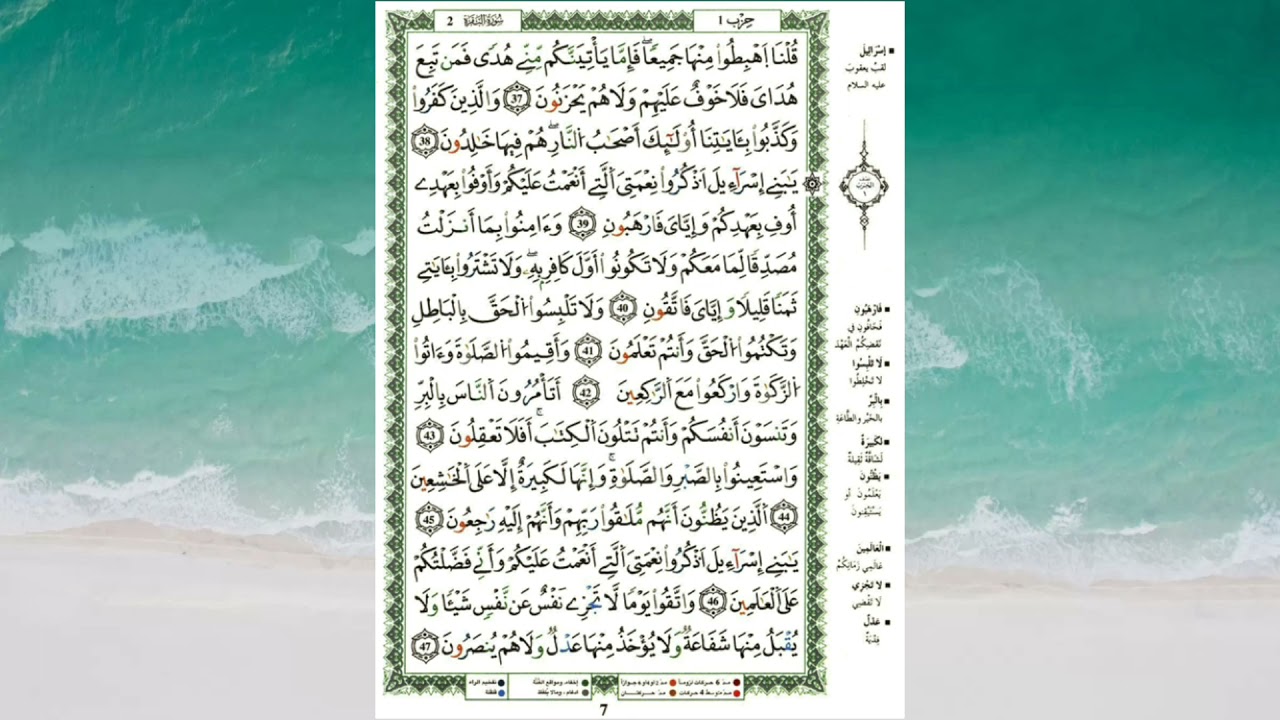 حِزْب 1
سُورَةُ البَقَرَة 2
قُلْنَا اَهْبِطُواْ مِنْهَا جَمِيعاٗۖ فَإِمَّا يَأْتِيَنَّكُم مِّنِّے هُدٗى فَمَن تَبِعَ
هُدَايَ فَلَا خَوْفٌ عَلَيْهِمْ وَلَا هُمْ يَحْزَنُونَ 37 وَالَّذِينَ كَفَرُواْ
وَكَذَّبُواْ بِـَٔايَٰتِنَا أُوْلَٰٓئِكَ أَصْحَٰبُ اُلنَّارِۖ هُمْ فِيهَا خَٰلِدُونَ 38
يَٰبَنِے إِسْرَآءِيلَ اَذْكُرُواْ نِعْمَتِيَ اَلَّتِے أَنْعَمْتُ عَلَيْكُمْ وَأَوْفُواْ بِعَهْدِے
أُوفِ بِعَهْدِكُمْ وَإِيَّٰيَ فَارْهَبُونِ 39 وَءَامِنُواْ بِمَا أَنزَلْتُ
مُصَدِّقاٗ لِّمَا مَعَكُمْ وَلَا تَكُونُواْ أَوَّلَ كَافِرِۢ بِهِۦۖ وَلَا تَشْتَرُواْ بِـَٔايَٰتِے
ثَمَناٗ قَلِيلاٗ وَإِيَّٰيَ فَاتَّقُونِ 40 وَلَا تَلْبِسُواْ اُلْحَقَّ بِالْبَٰطِلِ
وَتَكْتُمُواْ اُلْحَقَّ وَأَنتُمْ تَعْلَمُونَ 41 وَأَقِيمُواْ اُلصَّلَوٰةَ وَءَاتُواْ
اُلزَّكَوٰةَ وَارْكَعُواْ مَعَ اَلرَّٰكِعِينَ 42 أَتَأْمُرُونَ اَلنَّاسَ بِالْبِرِّ
وَتَنسَوْنَ أَنفُسَكُمْ وَأَنتُمْ تَتْلُونَ اَلْكِتَٰبَۚ أَفَلَا تَعْقِلُونَ 43
وَاسْتَعِينُواْ بِالصَّبْرِ وَالصَّلَوٰةِۚ وَإِنَّهَا لَكَبِيرَةٌ إِلَّا عَلَى اَلْخَٰشِعِينَ
44 اَلَّذِينَ يَظُنُّونَ أَنَّهُم مُّلَٰقُواْ رَبِّهِمْ وَأَنَّهُمْ إِلَيْهِ رَٰجِعُونَ 45
يَٰبَنِے إِسْرَآءِيلَ اَذْكُرُواْ نِعْمَتِيَ اَلَّتِے أَنْعَمْتُ عَلَيْكُمْ وَأَنِّے فَضَّلْتُكُمْ
عَلَى اَلْعَٰلَمِينَ 46 وَاتَّقُواْ يَوْماٗ لَّا تَجْزِے نَفْسٌ عَن نَّفْسٖ شَيْـٔاٗ وَلَا
يُقْبَلُ مِنْهَا شَفَٰعَةٌ وَلَا يُؤْخَذُ مِنْهَا عَدْلٌ وَلَا هُمْ يُنصَرُونَ 47
إِسْرَائِيلَ
لقبُ يعقوبَ
عليه السلام
نصف
الحزب
١
فَارْهَبُونِ
فَخَافُونِ فِي
نَقْضِكُمُ الْعَهْدَ
لَا تَلْبِسُوا
لَا تَخْلِطُوا
بِالْبِرِّ
بالخَيْرِ والطَّاعَةِ
لَكَبِيرَةٌ
لَشَاقَّةٌ ثَقِيلَةٌ
يَظُنُّونَ
يَعْلَمُونَ أو
يَسْتَيْقِنُونَ
الْعَالَمِينَ
عَالَمِي زَمَانِكُمْ
لَا تَجْزِي
لَا تَقْضِي
عَدْلٌ
فِدْيَةٌ
مدّ 6 حركات لزوماً مدّ 2 او 4 او 6 جوازاً إخفاء، ومواقع الغُنَّة تفخيم الراء
مدّ متوسط 4 حركات مدّ حركتان ادغام، ومالا يُلفَظ قلقلة
7